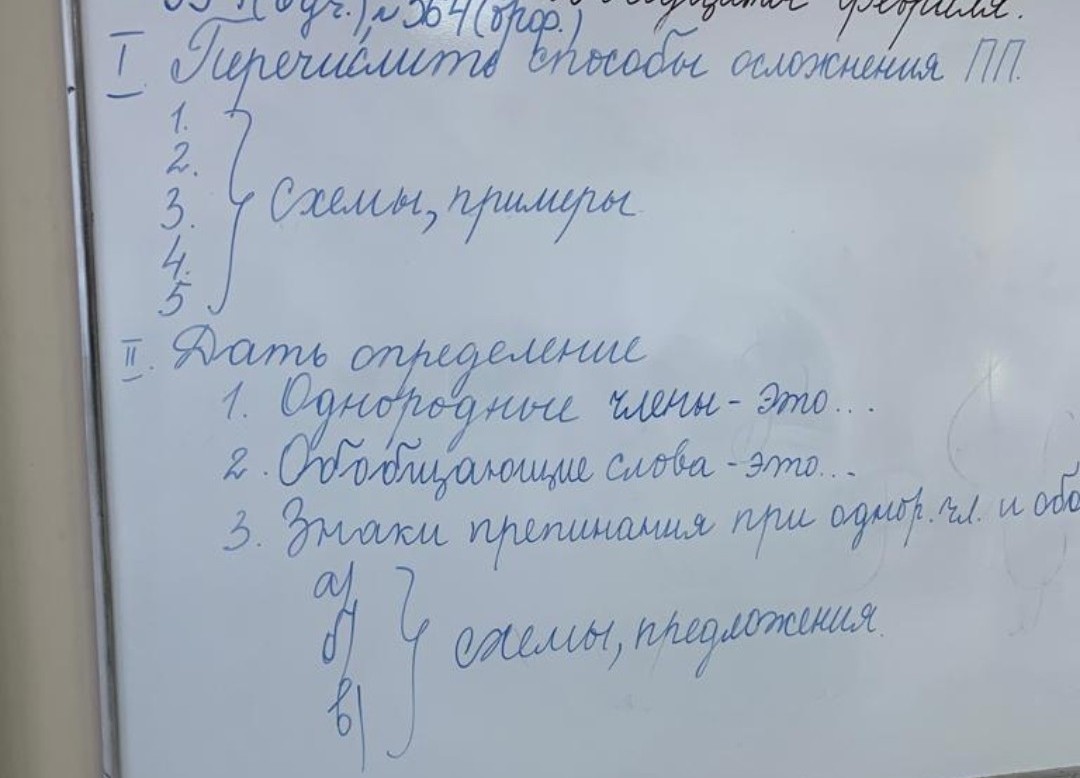 № 364 (орф.) февраля.
I. Перечислить способы осложнения ПП.
1.
2.
3. схемы, примеры.
4.
5
II. Дать определение
1. Однородные члены - это...
2. Обобщающие слова - это...
3. Знаки препинания при однор. чл. и обо
а)
б) схемы, предложения.
в)